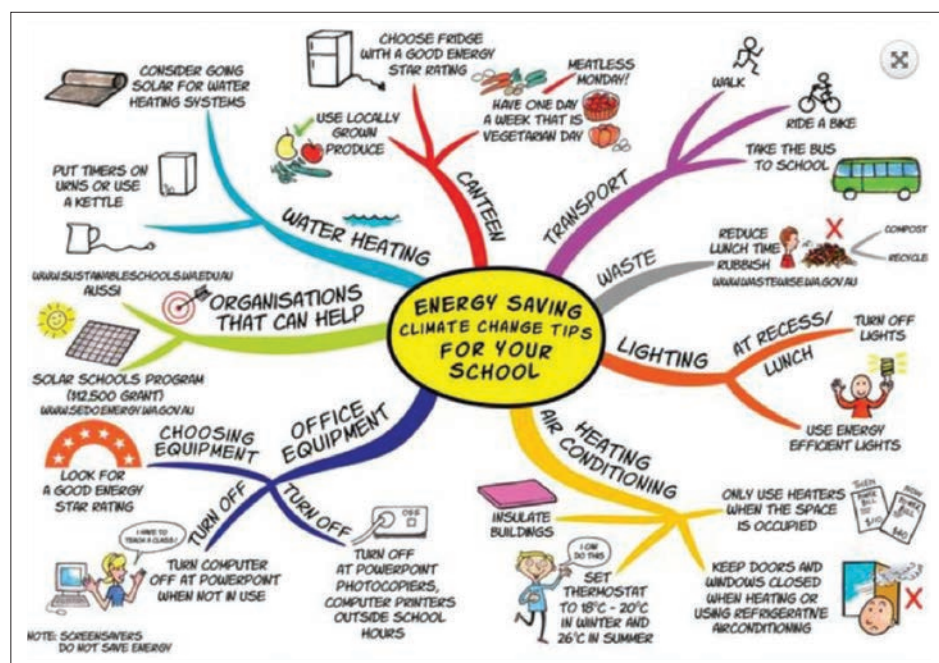 ENERGY SAVING
CLIMATE CHANGE TIPS
FOR YOUR
SCHOOL
WATER HEATING
CONSIDER GOING
SOLAR FOR WATER
HEATING SYSTEMS
PUT TIMERS ON
URNS OR USE
A KETTLE
CANTEEN
CHOOSE FRIDGE
WITH A GOOD ENERGY
STAR RATING
USE LOCALLY
GROWN
PRODUCE
MEATLESS
MONDAY!
HAVE ONE DAY
A WEEK THAT IS
VEGETARIAN DAY
TRANSPORT
WALK
RIDE A BIKE
TAKE THE BUS
TO SCHOOL
WASTE
REDUCE
LUNCH TIME
RUBBISH
COMPOST
RECYCLE
WWW.WASTEWISE.WA.GOV.AU
LIGHTING
AT RECESS/
LUNCH
TURN OFF
LIGHTS
USE ENERGY
EFFICIENT LIGHTS
HEATING
AIR CONDITIONING
ONLY USE HEATERS
WHEN THE SPACE
IS OCCUPIED
THEN
POWER
BILL
$110
NOW
POWER
BILL
$40
KEEP DOORS AND
WINDOWS CLOSED
WHEN HEATING OR
USING REFRIGERATIVE
AIRCONDITIONING
INSULATE
BUILDINGS
I CAN
DO THIS
SET
THERMOSTAT
TO 18°C - 20°C
IN WINTER AND
26°C IN SUMMER
OFFICE
EQUIPMENT
CHOOSING
EQUIPMENT
LOOK FOR
A GOOD ENERGY
STAR RATING
TURN OFF
I HAVE TO
TEACH A CLASS!
TURN COMPUTER
OFF AT POWERPOINT
WHEN NOT IN USE
NOTE: SCREENSAVERS
DO NOT SAVE ENERGY
TURN OFF
TURN OFF
AT POWERPOINT
PHOTOCOPIERS,
COMPUTER PRINTERS
OUTSIDE SCHOOL
HOURS
ORGANISATIONS
THAT CAN HELP
WWW.SUSTAINABLESCHOOLS.WA.EDU.AU
AUSSI
SOLAR SCHOOLS PROGRAM
($12,500 GRANT)
WWW.SEDO.ENERGY.WA.GOV.AU